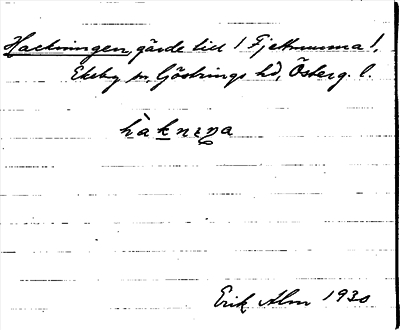 Hackningen, gärde till 1 Fjettmunna 1,
Ekeby sn, Göstrings hd, Österg. l.
hàknıŋa
Erik Alm 1930